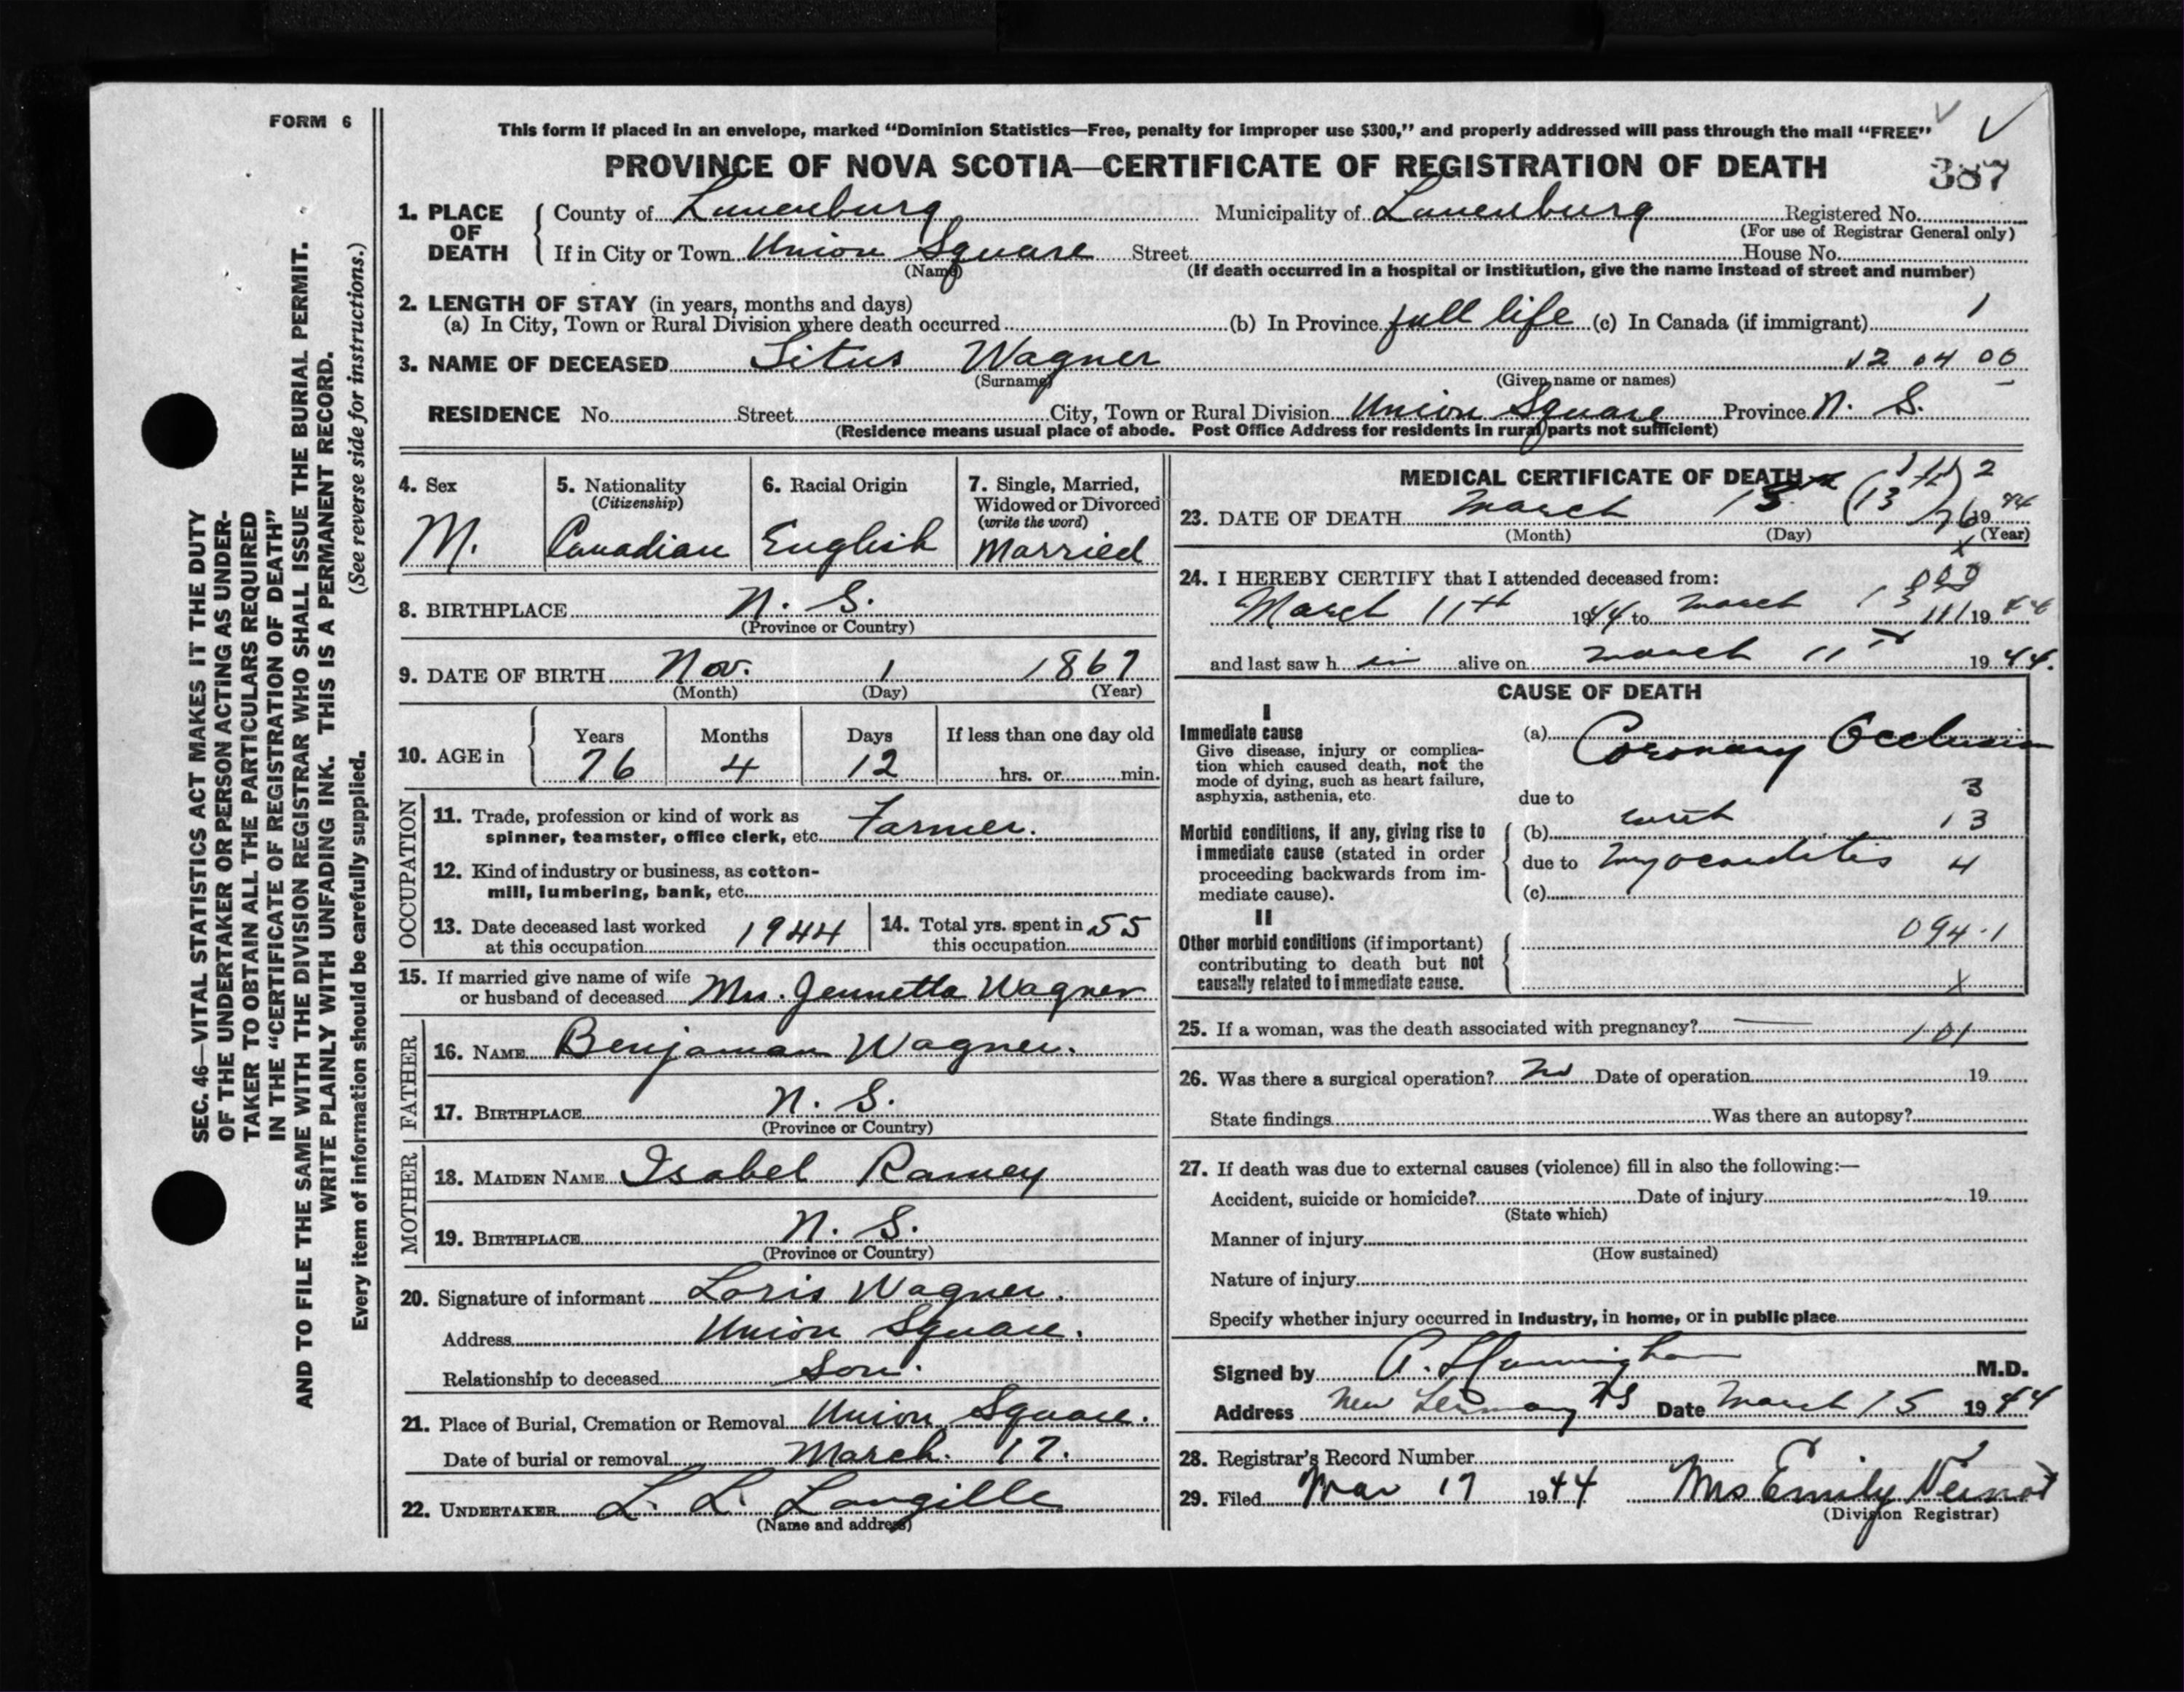 FORM 6
This form if placed in an envelope, marked "Dominion Statistics—Free, penalty for improper use $300," and properly addressed will pass through the mail "FREE"
PROVINCE OF NOVA SCOTIA—CERTIFICATE OF REGISTRATION OF DEATH
387
1. PLACE OF DEATH { County of Lunenburg Municipality of Lunenburg Registered No.
(For use of Registrar General only)
If in City or Town Union Square Street House No.
(Name) (If death occurred in a hospital or institution, give the name instead of street and number)
2. LENGTH OF STAY (in years, months and days)
(a) In City, Town or Rural Division where death occurred (b) In Province full life (c) In Canada (if immigrant) 1
3. NAME OF DECEASED Titus Wagner 12 04 00
(Surname) (Given name or names)
RESIDENCE No. Street City, Town or Rural Division Union Square Province N. S.
(Residence means usual place of abode. Post Office Address for residents in rural parts not sufficient)
SEC. 46—VITAL STATISTICS ACT MAKES IT THE DUTY
OF THE UNDERTAKER OR PERSON ACTING AS UNDER-
TAKER TO OBTAIN ALL THE PARTICULARS REQUIRED
IN THE "CERTIFICATE OF REGISTRATION OF DEATH"
AND TO FILE THE SAME WITH THE DIVISION REGISTRAR WHO SHALL ISSUE THE BURIAL PERMIT.
WRITE PLAINLY WITH UNFADING INK. THIS IS A PERMANENT RECORD.
Every item of information should be carefully supplied. (See reverse side for instructions.)
4. Sex M.
5. Nationality (Citizenship) Canadian
6. Racial Origin English
7. Single, Married, Widowed or Divorced (write the word) Married
8. BIRTHPLACE N. S.
(Province or Country)
9. DATE OF BIRTH Nov. 1 1867
(Month) (Day) (Year)
10. AGE in { Years Months Days If less than one day old
76 4 12 hrs. or min.
OCCUPATION
11. Trade, profession or kind of work as
spinner, teamster, office clerk, etc. Farmer.
12. Kind of industry or business, as cotton-
mill, lumbering, bank, etc.
13. Date deceased last worked
at this occupation 1944
14. Total yrs. spent in
this occupation 55
15. If married give name of wife
or husband of deceased Mrs. Jennetta Wagner
FATHER
16. NAME Benjaman Wagner.
17. BIRTHPLACE N. S.
(Province or Country)
MOTHER
18. MAIDEN NAME Isabel Ramey
19. BIRTHPLACE N. S.
(Province or Country)
20. Signature of informant Loris Wagner.
Address Union Square.
Relationship to deceased Son.
21. Place of Burial, Cremation or Removal Union Square.
Date of burial or removal March. 17.
22. UNDERTAKER L. L. Langille
(Name and address)
MEDICAL CERTIFICATE OF DEATH
23. DATE OF DEATH March 13 (13 19 44
(Month) (Day) (Year)
24. I HEREBY CERTIFY that I attended deceased from:
March 11th 1944 to March 13 1944
and last saw h im alive on March 11th 1944.
CAUSE OF DEATH
I
Immediate cause
Give disease, injury or complica-
tion which caused death, not the
mode of dying, such as heart failure,
asphyxia, asthenia, etc.
(a) Coronary Occlusion
due to 3
Morbid conditions, if any, giving rise to
immediate cause (stated in order
proceeding backwards from im-
mediate cause).
(b) with 13
due to Myocarditis 4
(c)
II
Other morbid conditions (if important)
contributing to death but not
causally related to immediate cause.
094.1
X
25. If a woman, was the death associated with pregnancy? — 101
26. Was there a surgical operation? No Date of operation 19
State findings Was there an autopsy?
27. If death was due to external causes (violence) fill in also the following:—
Accident, suicide or homicide? Date of injury 19
(State which)
Manner of injury
(How sustained)
Nature of injury
Specify whether injury occurred in Industry, in home, or in public place
Signed by M.D.
Address New Germany NS Date March 15 1944
28. Registrar's Record Number
29. Filed Mar 17 1944 Mrs Emily Veinot
(Division Registrar)